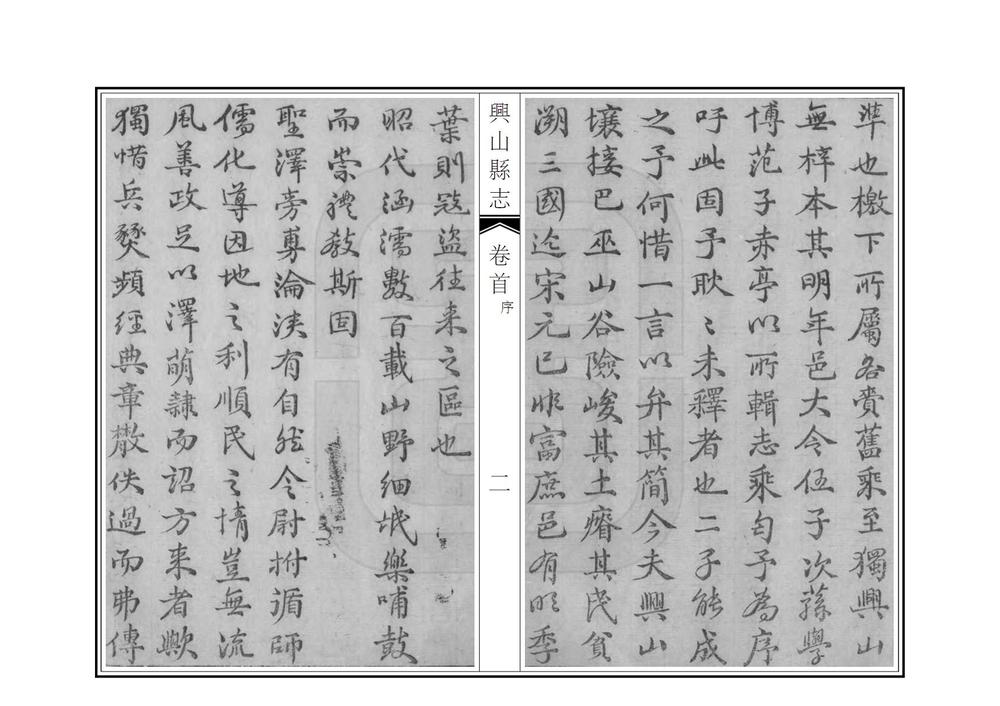 準也檄下所屬各賫舊乘至獨興山
無梓本其明年邑大令伍子次蓀學
博范子赤亭以所輯志乘匄予為序
吁此固予耿〻未釋者也二子能成
之予何惜一言以弁其簡今夫興山
壤接巴巫山谷險峻其土瘠其民貧
溯三國迄宋元已非富庶邑有明季
興山縣志
卷首
序
二
葉則寇盜往来之區也
昭代涵濡數百載山野細氓樂哺鼓
而崇禮教斯固
聖澤旁敷淪浹有自然令尉拊循師
儒化導因地之利順民之情豈無流
風善政足以澤萌隷而詔方来者歟
獨惜兵燹頻經典章散佚過而弗傳